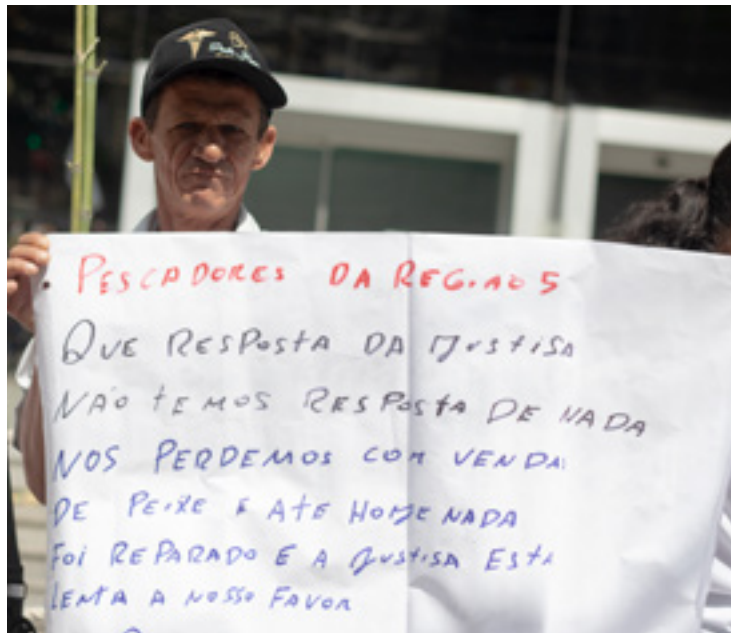 PESCADORES DA REGIAO 5
QUE RESPOSTA DA JUSTISA
NÃO TEMOS RESPOSTA DE NADA
NOS PERDEMOS COM VENDA
DE PEIXE E ATE HOJE NADA
FOI REPARADO E A JUSTISA ESTA
LENTA A NOSSO FAVOR